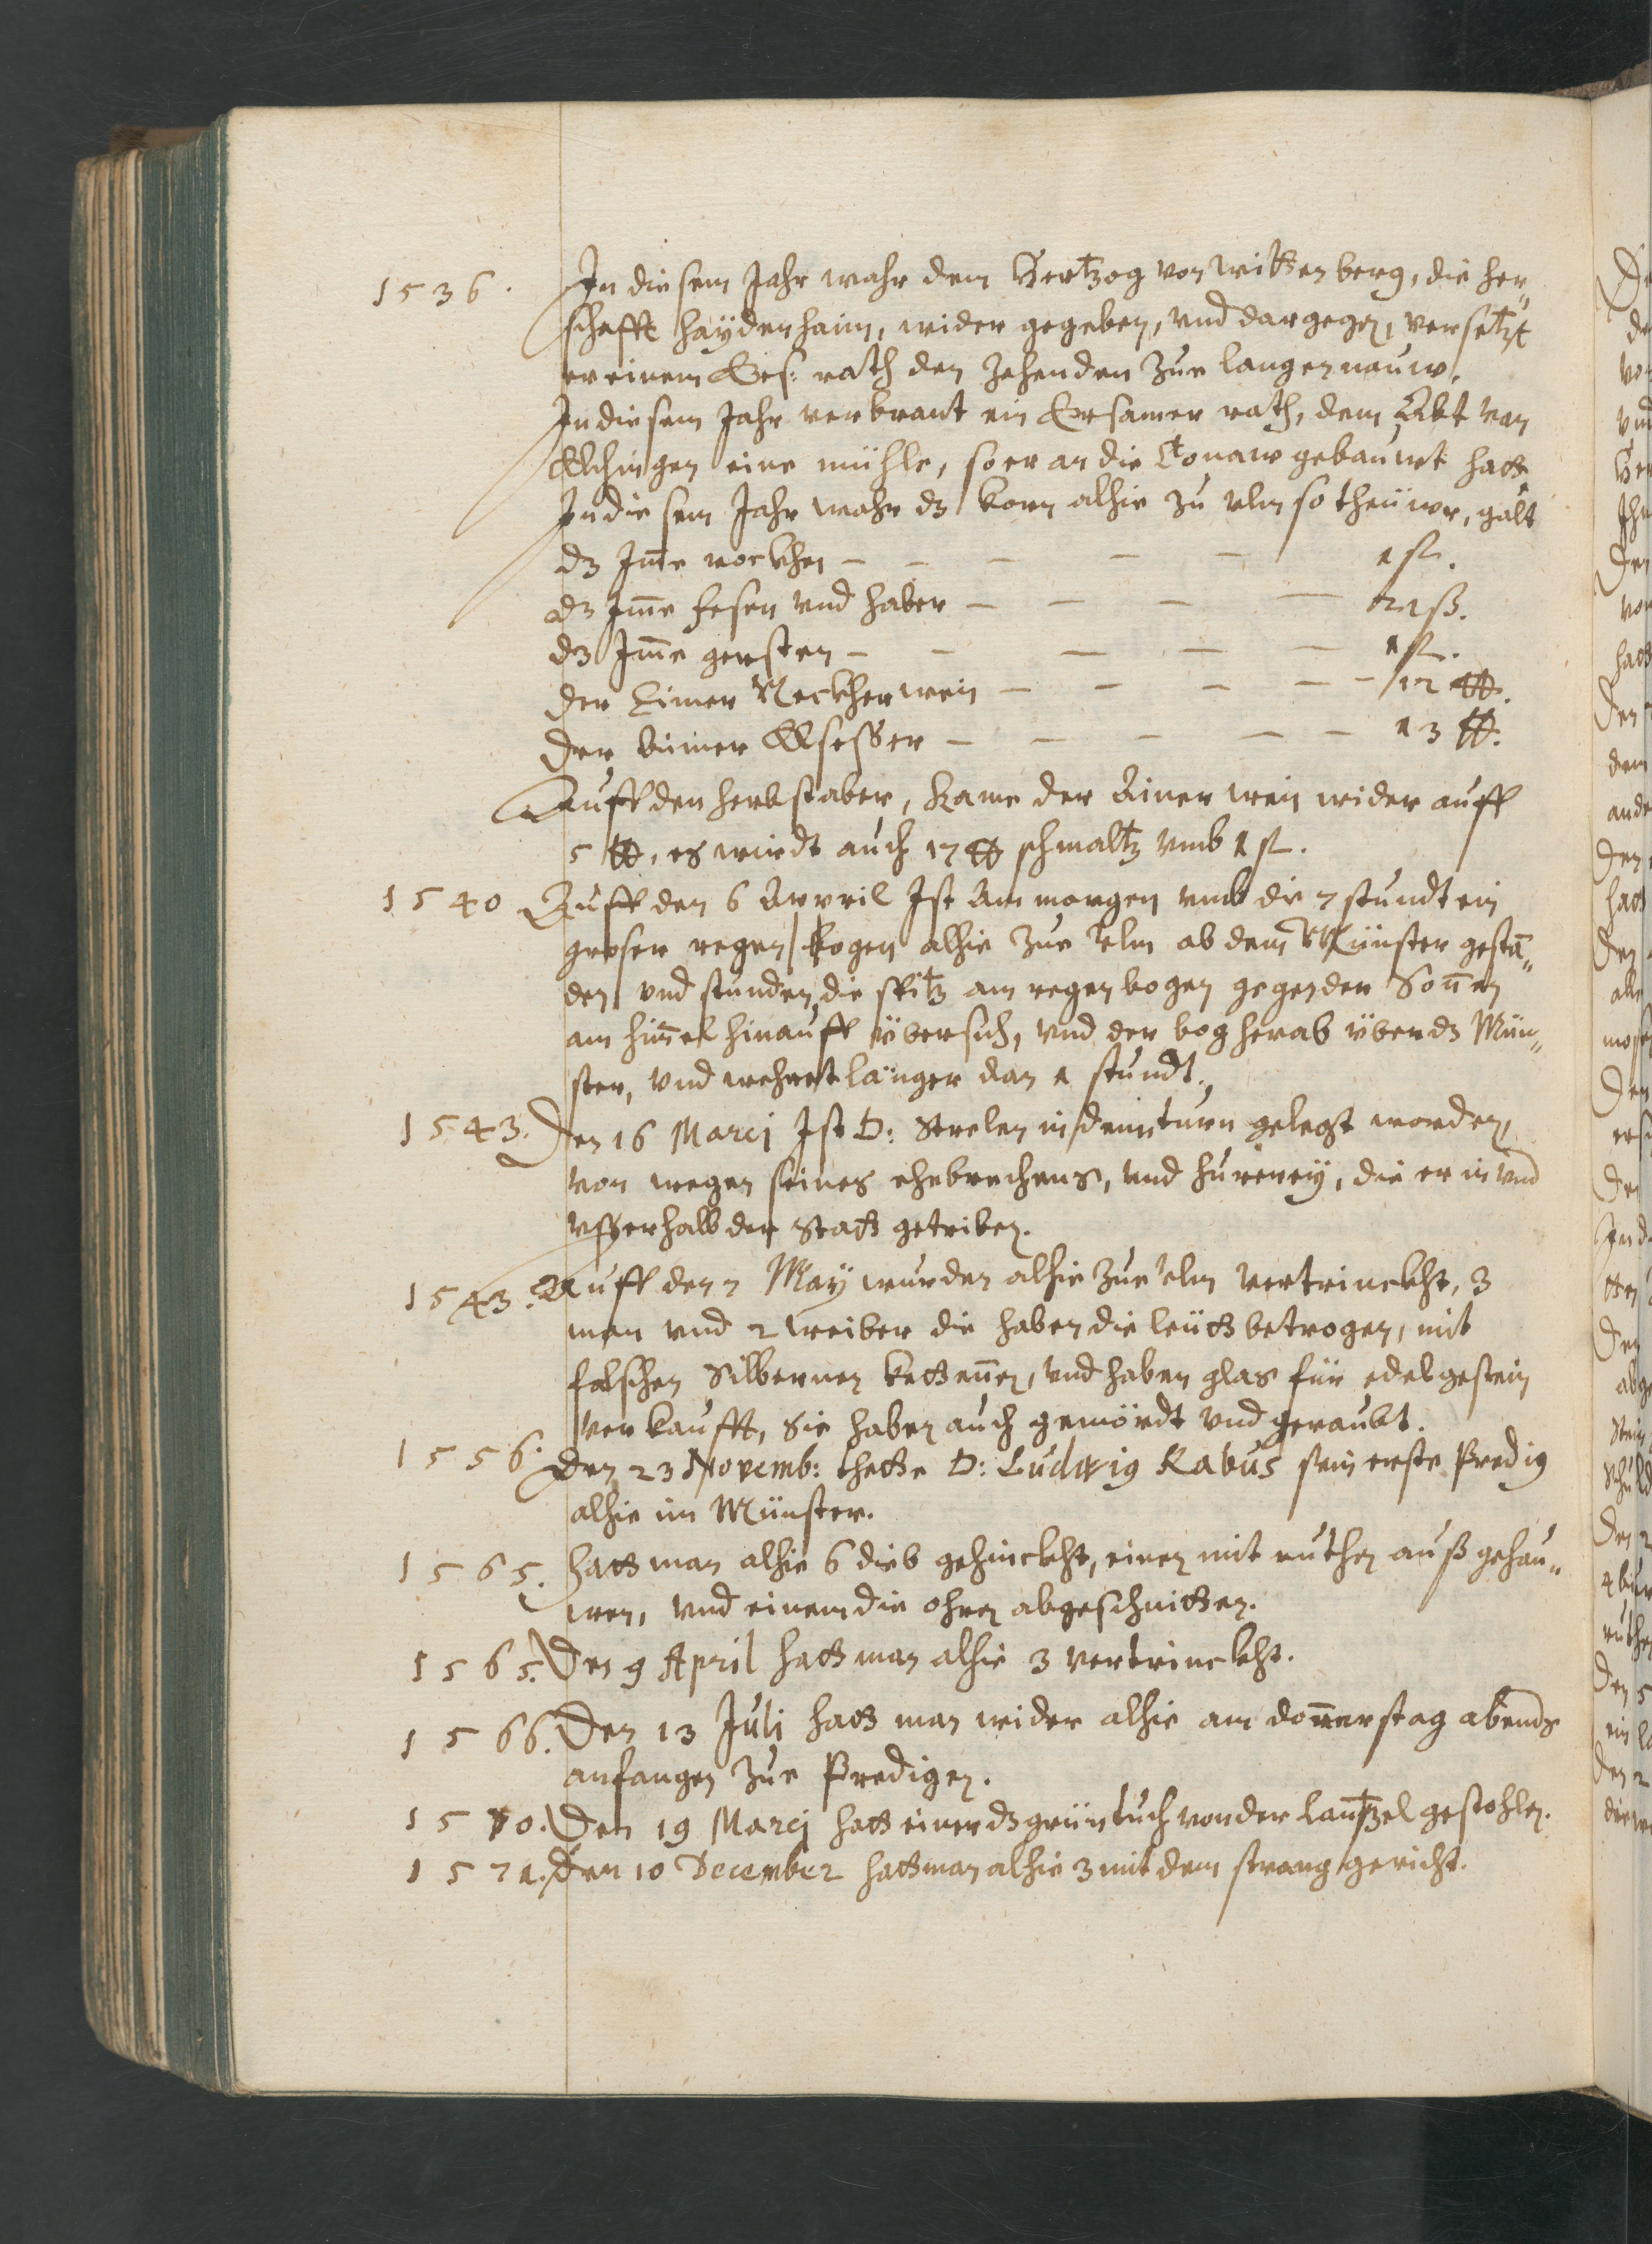 1536. In diesem Jahr wahr dem Hertzog von Wittenberg, die her„
schafft Haÿdenhaim, wider gegeben, vnd dargegen, versetzt
er einem Ers: rath den Zehenden zue langennauw.
In diesem Jahr verbrant ein Ersamer rath, dem Abt von
Elchingen eine mühle, so er an die Tonaw gebauwt hatt
In diesem Jahr wahr dz korn alhie zu vlm so theüwr, galt
dz Im̄e rockhen – – – – – 1 fl.
dz Im̄e fesen vnd haber – – – – 21 ß.
dz Im̄e gersten – – – – – 1 fl.
der Eimer Neckherwein – – – – – 12 ℔.
der Eimer Elsesser – – – – – 13 ℔.
Auff den herbst aber, kame der Aimer wein wider auff
5 ℔, es wirdt auch 17 ℔ schmaltz vmb 1 fl.
1540 Auff den 6 Appril Ist Am morgen vmb die 7 stundt ein
groser regen bogen alhie zue vlm ab dem Münster gestā„
den vnd stunden die spitz am regenbogen gegen der Son̄en
am him̄el hinauff übersich, vnd der bog herab über dz Mün„
ster, vnd wehret länger dan 1 stundt.
1543. Den 16 Marcj Ist D: Strelen in dem turn gelegt worden,
von wegen seines ehebrechens, vnd hurereÿ, die er in vnd
vsserhalb der Statt getriben.
1543. Auff den 7 Maÿ wurden alhie zue vlm vertrinckht, 3
man vnd 2 weiber die haben die leütt betrogen, mit
falschen Silbernen kettenn̄en, vnd haben glas für edelgestein
verkaufft, Sie haben auch gemördt vnd geraubt.
1556. Den 23 Novemb: thette D: Ludwig Rabus sein erste Predig
alhie im Münster.
1565. Hatt man alhie 6 dieb gehinckht, einen mit ruthen auß gehau„
wen, vnd einem die ohren abgeschnitten.
1565. Den 9 April hatt man alhie 3 vertrinckht.
1566. Den 13 Juli hatt man wider alhie am don̄erstag abends
anfangen zue Predigen.
1570. Den 19 Marcj hatt einer dz grüntuch von der Cantzel gestohlen.
1571. Den 10 December hatt man alhie 3 mit dem strang gericht.